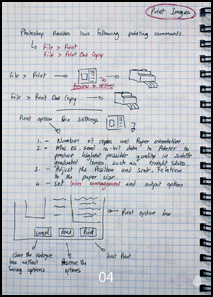 Print Images
Photoshop has following printing commands.
File > Print
File > Print One Copy
File > Print
Preview & settings
File > Print One Copy
Print option box settings
1. - Number of copies and Paper orientation
2. - Mac OS send 16-bit data to Printer to
produce highest possible quality in subtle
graduated tones such as bright skies.
3. - Adjust the Position and Scale relation
to the paper size.
4. Set Color management and output option
Print option box
Cancel Done Print
close the dialogue Preserve the Just Print
box without options
saving options
04